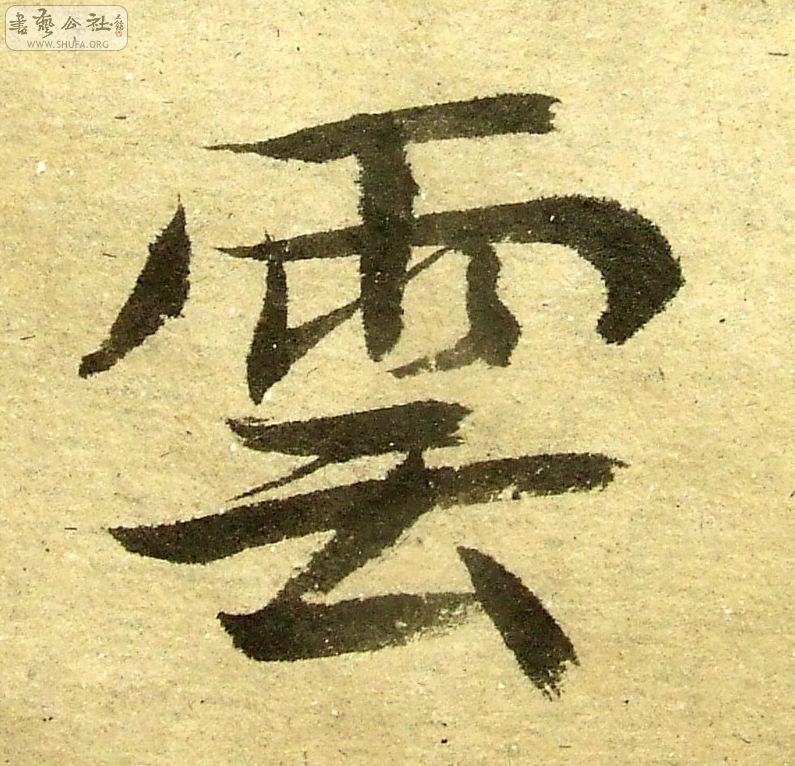 書藝公社
WWW.SHUFA.ORG
雲